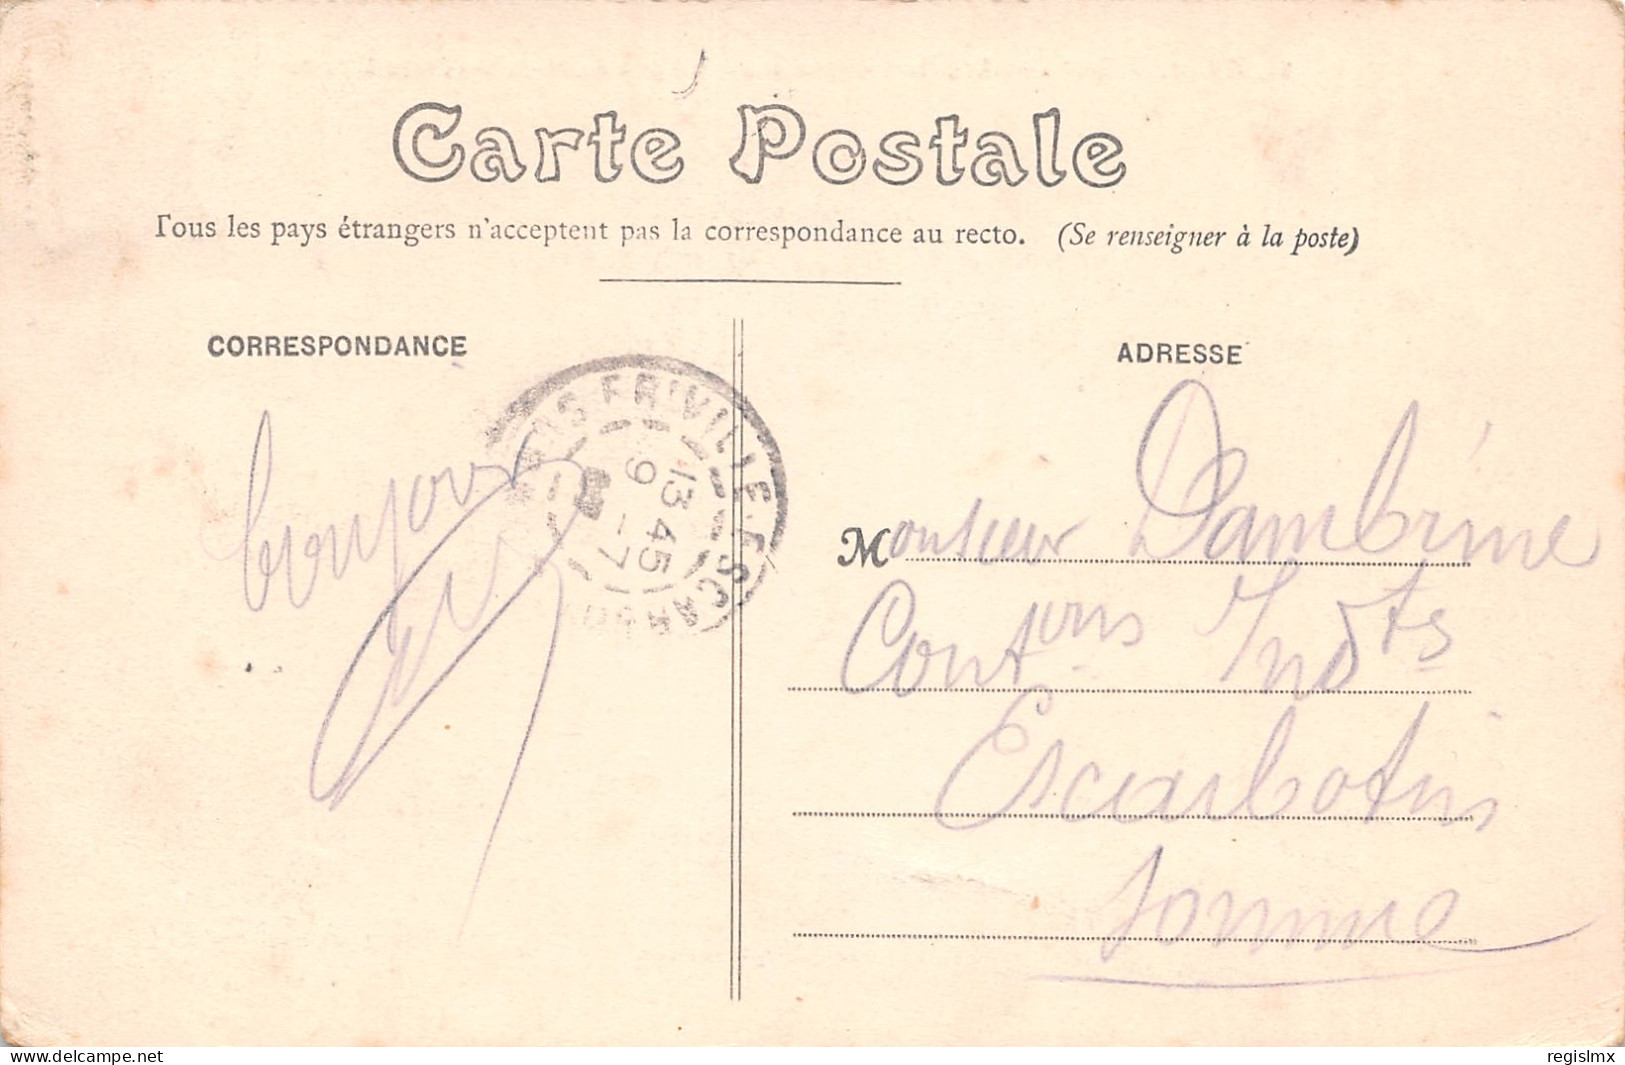 Carte Postale
Tous les pays étrangers n'acceptent pas la correspondance au recto. (Se renseigner à la poste)
CORRESPONDANCE
bonjour
FRIVILLE-ESCARBOTIN
13 45
9 - 7
ADRESSE
Monsieur Dambrine
Contons Indts
Escarbotin
Somme
delcampe.net
regislmx